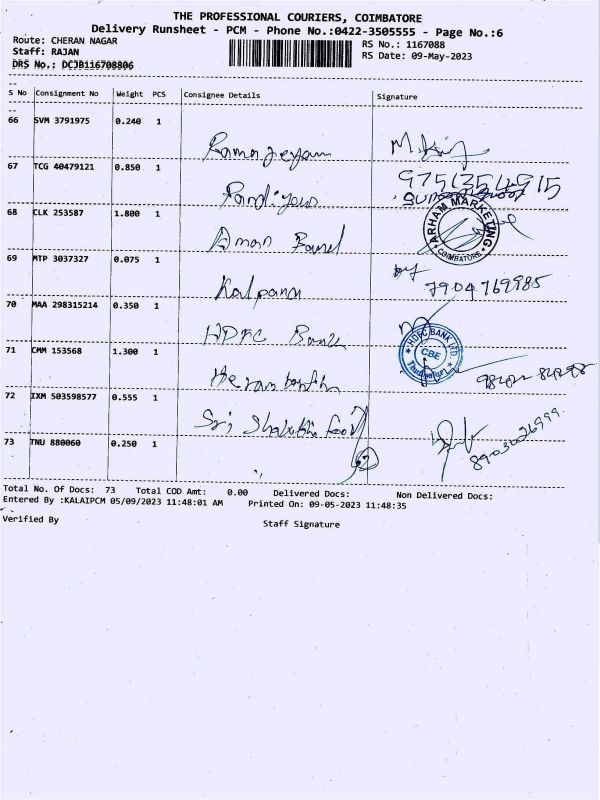 THE PROFESSIONAL COURIERS, COIMBATORE
Delivery Runsheet - PCM - Phone No.:0422-3505555 - Page No.:6
Route: CHERAN NAGAR
RS No.: 1167088
Staff: RAJAN
RS Date: 09-May-2023
DRS No.: DCJB116708806
S No Consignment No Weight PCS Consignee Details Signature
66 SVM 3791975 0.240 1
Ramajeyam
67 TCG 40479121 0.850 1
Pandiyan
68 CLK 253587 1.800 1
ARHAM MARKETING
COIMBATORE
Aman
69 MTP 3037327 0.075 1
Kalpana 7904769985
70 MAA 298315214 0.350 1
HDFC Bank
HDFC BANK LTD
CBE
71 CMM 153568 1.300 1
72 IXM 503598577 0.555 1
Sri
8903026999
73 TNU 880060 0.250 1
Total No. Of Docs: 73 Total COD Amt: 0.00 Delivered Docs: Non Delivered Docs:
Entered By :KALAIPCM 05/09/2023 11:48:01 AM Printed On: 09-05-2023 11:48:35
Verified By Staff Signature